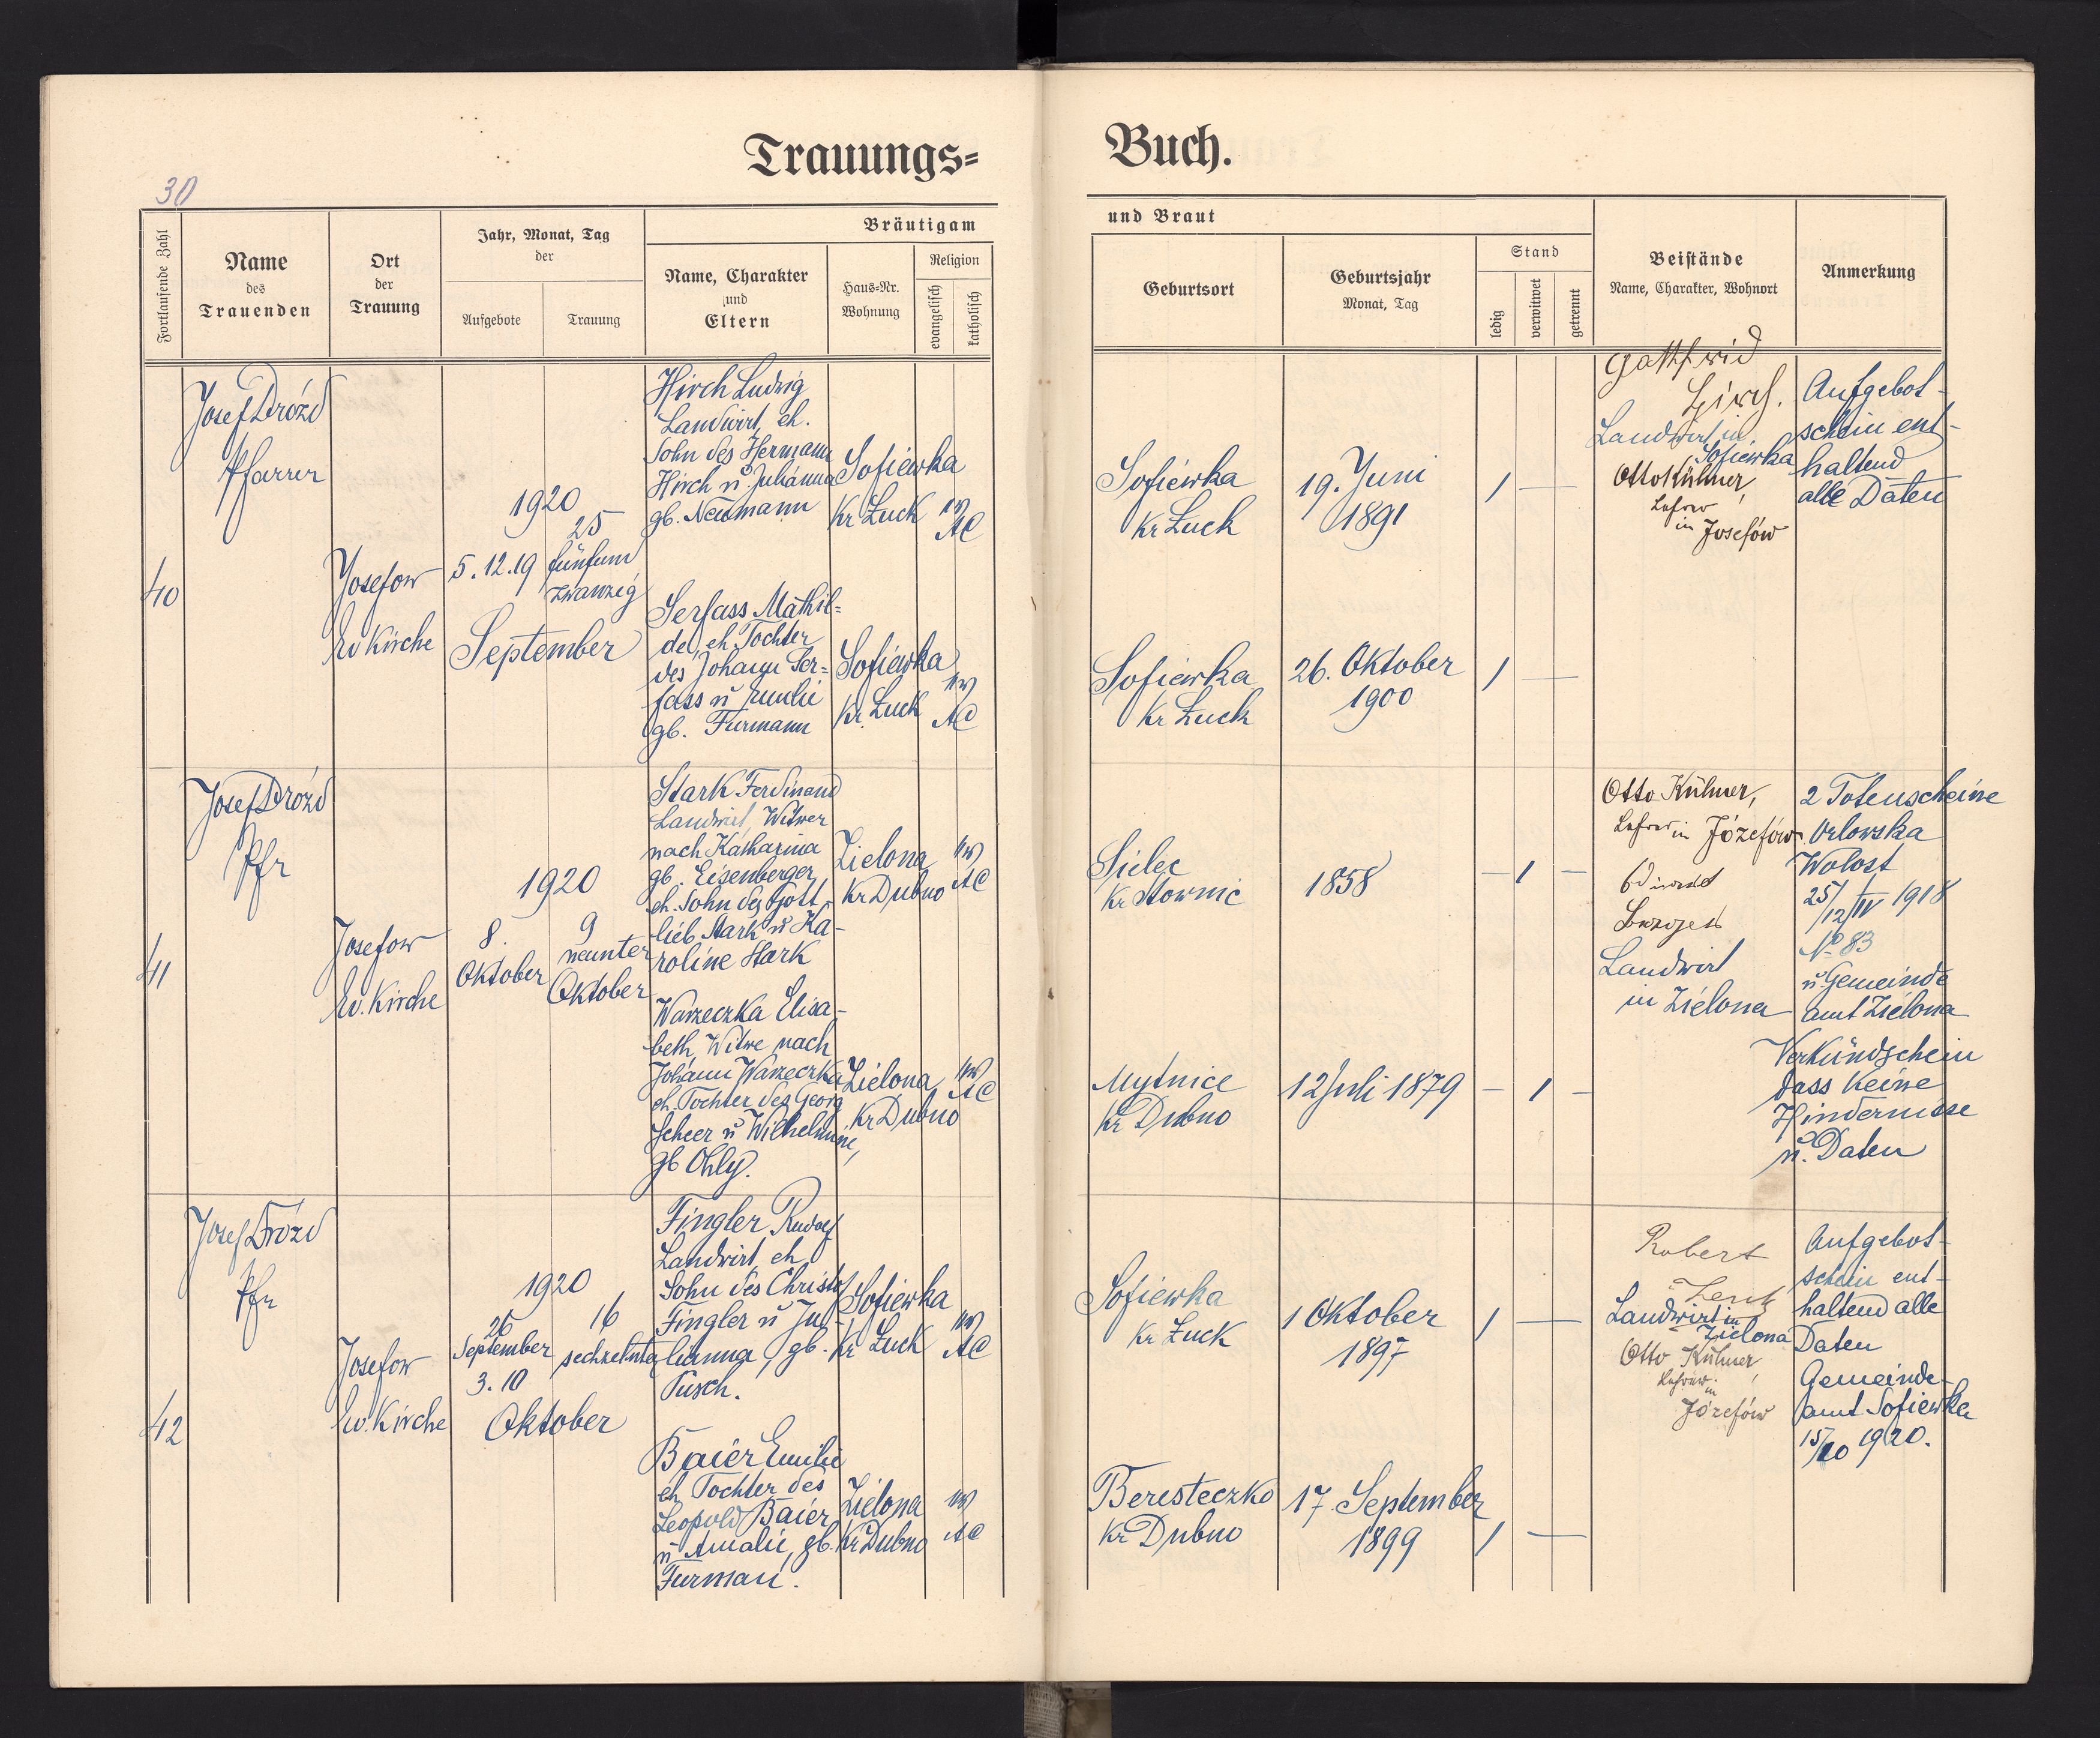 Trauungs=
Buch.
30
Fortlaufende Zahl
Name
des
Trauenden
Ort
der
Trauung
Jahr, Monat, Tag
der
Aufgebote
Trauung
Bräutigam
Name, Charakter
und
Eltern
Haus=Nr.
Wohnung
Religion
evangelisch
katholisch
und Braut
Geburtsort
Geburtsjahr
Monat, Tag
Stand
ledig
verwitwet
getrennt
Beistände
Name, Charakter, Wohnort
Anmerkung
40
Josef Drózd
Pfarrer
Josefow
Ev Kirche
1920
5.12.19
25
fünfund
zwanzig
September
Hirch Ludwig
Landwirt, eh.
Sohn des Hermann
Hirch u Julianna
gb. Neumann
Sofiewka
Kr Łuck
ev
AC
Sofiewka
Kr Łuck
19. Juni
1891
Gottfried
Hirch.
Landwirt in
Sofiewka
Otto Kühner,
Lehrer
in Josefów
Aufgebot-
schein ent-
haltend
alle Daten
Serfass Mathil=
de, eh Tochter
des Johann Ser=
fass u Emilie
gb. Furmann
Sofiewka
Kr. Łuck
ev
AC
Sofiewka
Kr Łuck
26. Oktober
1900
41
Josef Drózd
Pfr
Josefow
Ev. Kirche
1920
8.
Oktober
9
neunter
Oktober
Stark Ferdinand
Landwirt, Witwer
nach Katharina
gb. Eisenberger,
eh. Sohn des Gott-
lieb Stark u Ka-
roline Stark
Zielona
Kr Dubno
ev
AC
Sielec
1858
Otto Kühner,
Lehrer in Józefów
Landwirt
in Zielona
2 Totenscheine
Orlowska
Wolost
25/12/IV 1918
No 83
u Gemeinde
amt Zielona
Verkündschein
dass Keine
Hindernisse
u. Daten
Warzeczka Elisa-
beth, Witwe nach
Johann Warzeczka
eh. Tochter des Georg
Scheer u Wilhelmine,
gb Ohly.
Zielona
Kr Dubno
ev
AC
Mytnice
Kr Dubno
12 Juli 1879
42
Josef Drózd
Pfr
Josefow
Ev. Kirche
1920
26
September
3. 10
16
sechzehnter
Oktober
Fingler Rudolf
Landwirt, eh
Sohn des Christof
Fingler u Ju-
lianna, gb.
Pusch.
Sofiewka
Kr Łuck
ev
AC
Sofiewka
Kr Łuck
1 Oktober
1897
Robert
Landwirt in
Zielona
Otto Kühner,
Lehrer
in
Józefów
Aufgebot-
schein ent-
haltend alle
Daten
Gemeinde-
amt Sofiewka
15/10 1920.
Baier Emilie
eh Tochter des
Leopold Baier
u Amalie, gb.
Furman.
Zielona
Kr Dubno
ev
AC
Beresteczko
Kr Dubno
17. September
1899